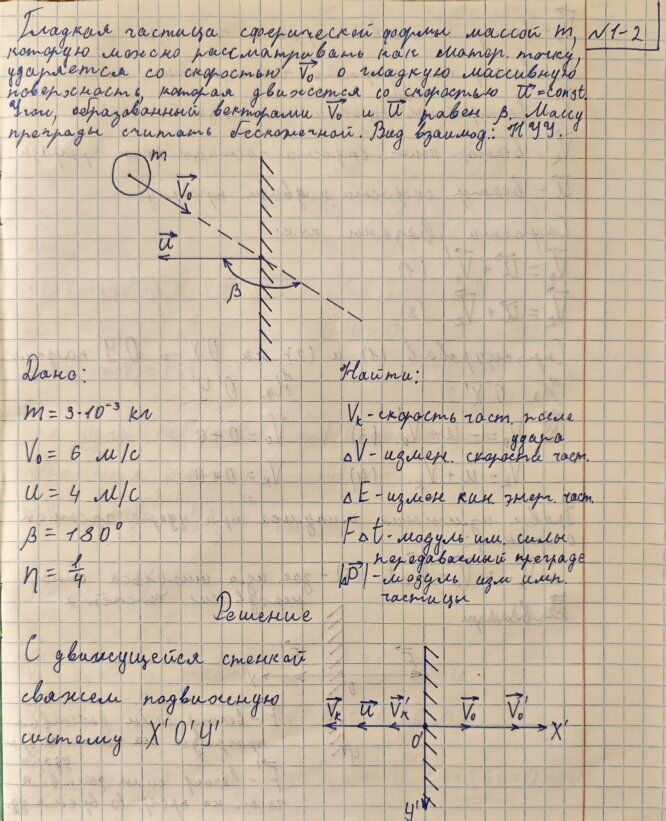 Гладкая частица сферической формы массой m,
N1-2
которую можно рассматривать как матер. точку,
ударяется со скоростью V₀ о гладкую массивную
поверхность, которая движется со скоростью U = const.
Угол, образованный векторами V₀ и U равен β. Массу
преграды считать бесконечной. Вид взаимод.: НУУ.
m
V₀
U
β
Дано:
m = 3·10⁻³ кг
V₀ = 6 м/с
U = 4 м/с
β = 180°
η = 1/4
Найти:
Vк - скорость част. после
удара
ΔV - измен. скорости част.
ΔE - измен кин. энерг. част.
FΔt - модуль им. силы
передаваемый преграде
|ΔP| - модуль изм имп.
частицы
Решение
С движущейся стенкой
свяжем подвижную
систему X'O'Y'
Vк U Vк' V₀ V₀' X'
O'
Y'